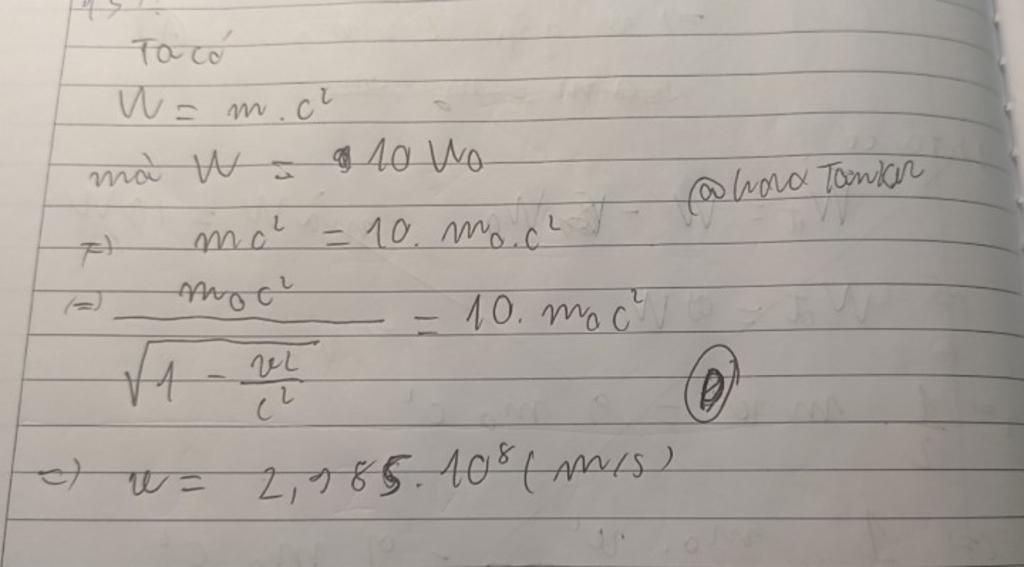 Ta có
W = m.c²
mà W = 10 W₀
=> mc² = 10. m₀.c²
(=) m₀c² / √(1 - v²/c²) = 10. m₀c²
D
=) v = 2,985.10⁸ (m/s)